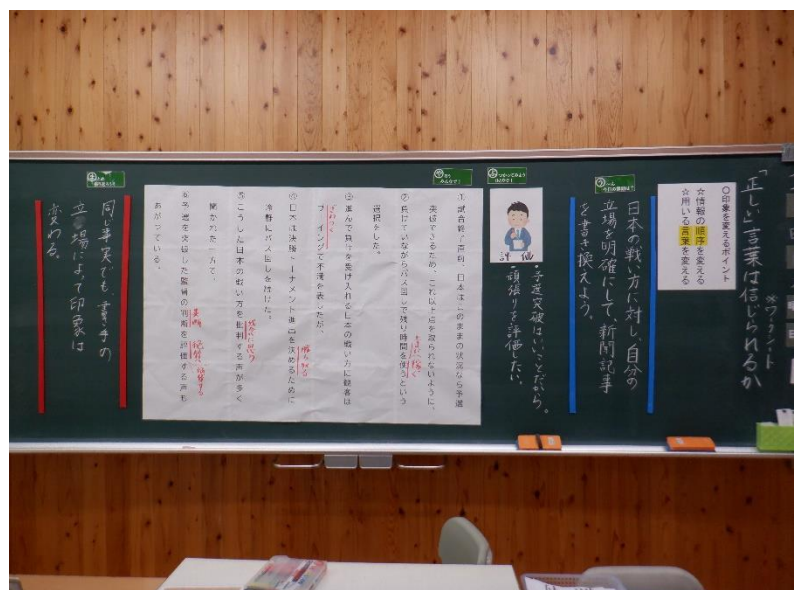 「正しい」言葉は信じられるか
○印象を変えるポイント
☆情報の順序を変える
☆用いる言葉を変える
日本の戦い方に対し、自分の
立場を明確にして、新聞記事
を書き換えよう。
評価
・予選突破はいいことだから。
・頑張りを評価したい。
①試合終了直前、日本はこのままの状況なら予選
突破できるため、これ以上点を取られないように、
②負けていながらパス回しで残り時間を使うという
選択をした。
③進んで負けを受け入れる日本の戦い方に観客は
ブーイングで不満を表したが、
④日本は決勝トーナメント進出を決めるために
冷静にパス回しを続けた。
⑤こうした日本の戦い方を批判する声が多く
聞かれた一方で、
⑥予選を突破した監督の判断を評価する声も
あがっている。
同じ事実でも、書き手の
立場によって印象は
変わる。